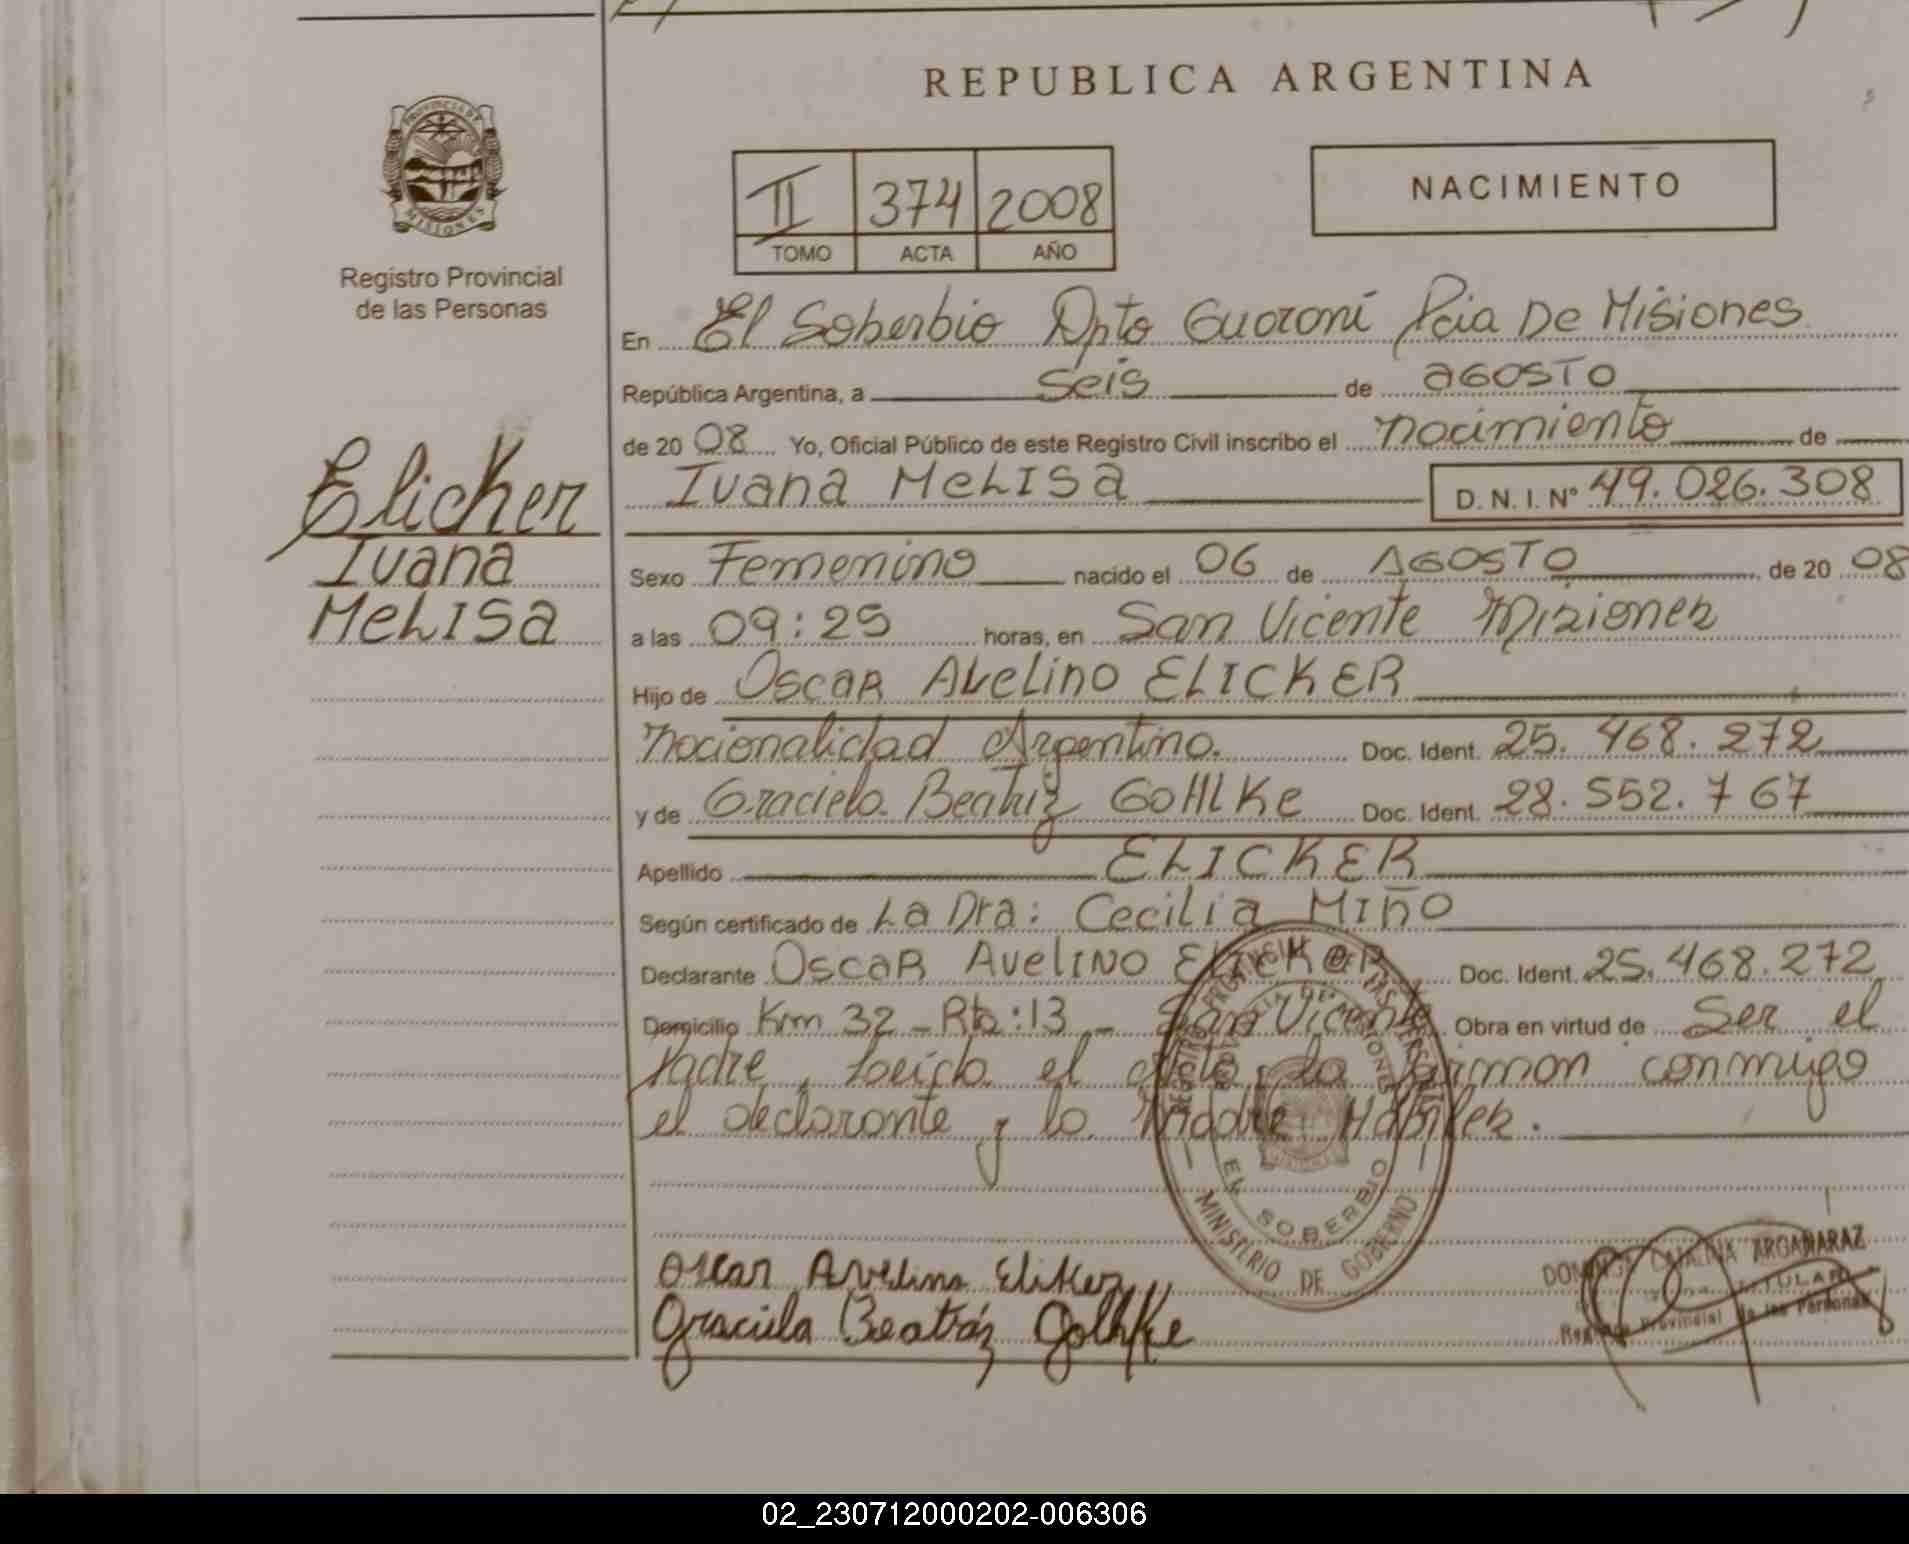 REPUBLICA ARGENTINA
PROVINCIA DE
MISIONES
Registro Provincial
de las Personas
II 374 2008
TOMO ACTA AÑO
NACIMIENTO
En El Soberbio Dpto Guaraní Pcia De Misiones
República Argentina, a seis de agosto
de 20 08 Yo, Oficial Público de este Registro Civil inscribo el nacimiento de
Ivana MeLISa D. N. I. N° 49.026.308
Elicker
Ivana
MeLISa
Sexo Femenino nacido el 06 de AGOSTO de 20 08
a las 09:25 horas, en San Vicente Misiones
Hijo de Oscar Avelino ELICKER
nacionalidad Argentina. Doc. Ident. 25.468.272
y de Graciela Beatriz GOHLKe Doc. Ident. 28.552.767
Apellido ELICKER
Según certificado de La Dra: Cecilia Miño
Declarante Oscar Avelino Elicker Doc. Ident. 25.468.272
Domicilio Km 32 - Rta: 13 - San Vicente Obra en virtud de Ser el
Padre, Leída el acta, la firman conmigo
el declarante y la Madre Hábiles.
REGISTRO PROVINCIAL DE LAS PERSONAS
PROVINCIA DE MISIONES
EL SOBERBIO
MINISTERIO DE GOBERNO
Oscar Avelino Eliker
Graciela Beatríz Golhke
CATALINA ARGAÑARAZ
TITULAR
Registro Provincial de las Personas
02_230712000202-006306